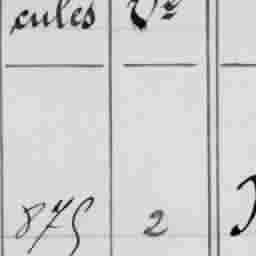 cules Vº
875 2